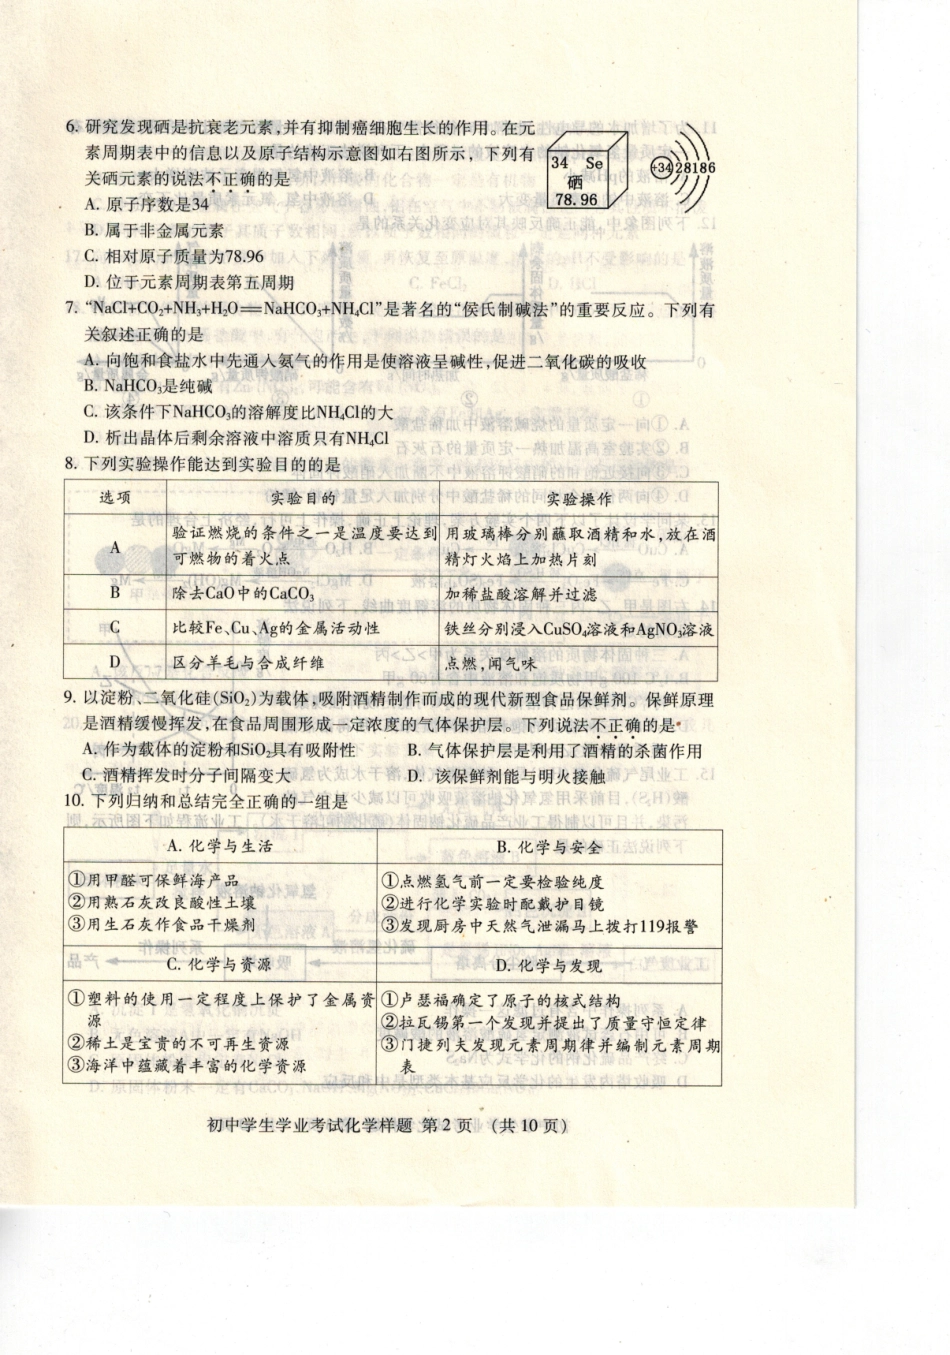 6. 研究发现硒是抗衰老元素,并有抑制癌细胞生长的作用。在元
素周期表中的信息以及原子结构示意图如右图所示,下列有
关硒元素的说法不正确的是
34 Se
硒
78.96
+34 2 8 18 6
A. 原子序数是34
B. 属于非金属元素
C. 相对原子质量为78.96
D. 位于元素周期表第五周期
7. “NaCl+CO₂+NH₃+H₂O==NaHCO₃+NH₄Cl”是著名的“侯氏制碱法”的重要反应。下列有
关叙述正确的是
A. 向饱和食盐水中先通入氨气的作用是使溶液呈碱性,促进二氧化碳的吸收
B. NaHCO₃是纯碱
C. 该条件下NaHCO₃的溶解度比NH₄Cl的大
D. 析出晶体后剩余溶液中溶质只有NH₄Cl
8. 下列实验操作能达到实验目的的是
选项 实验目的 实验操作
A 验证燃烧的条件之一是温度要达到可燃物的着火点 用玻璃棒分别蘸取酒精和水,放在酒精灯火焰上加热片刻
B 除去CaO中的CaCO₃ 加稀盐酸溶解并过滤
C 比较Fe、Cu、Ag的金属活动性 铁丝分别浸入CuSO₄溶液和AgNO₃溶液
D 区分羊毛与合成纤维 点燃,闻气味
9. 以淀粉、二氧化硅(SiO₂)为载体,吸附酒精制作而成的现代新型食品保鲜剂。保鲜原理
是酒精缓慢挥发,在食品周围形成一定浓度的气体保护层。下列说法不正确的是
A. 作为载体的淀粉和SiO₂具有吸附性 B. 气体保护层是利用了酒精的杀菌作用
C. 酒精挥发时分子间隔变大 D. 该保鲜剂能与明火接触
10. 下列归纳和总结完全正确的一组是
A. 化学与生活 B. 化学与安全
①用甲醛可保鲜海产品
②用熟石灰改良酸性土壤
③用生石灰作食品干燥剂
①点燃氢气前一定要检验纯度
②进行化学实验时配戴护目镜
③发现厨房中天然气泄漏马上拨打119报警
C. 化学与资源 D. 化学与发现
①塑料的使用一定程度上保护了金属资
源
②稀土是宝贵的不可再生资源
③海洋中蕴藏着丰富的化学资源
①卢瑟福确定了原子的核式结构
②拉瓦锡第一个发现并提出了质量守恒定律
③门捷列夫发现元素周期律并编制元素周期
表
初中学生学业考试化学样题 第 2 页 (共 10 页)